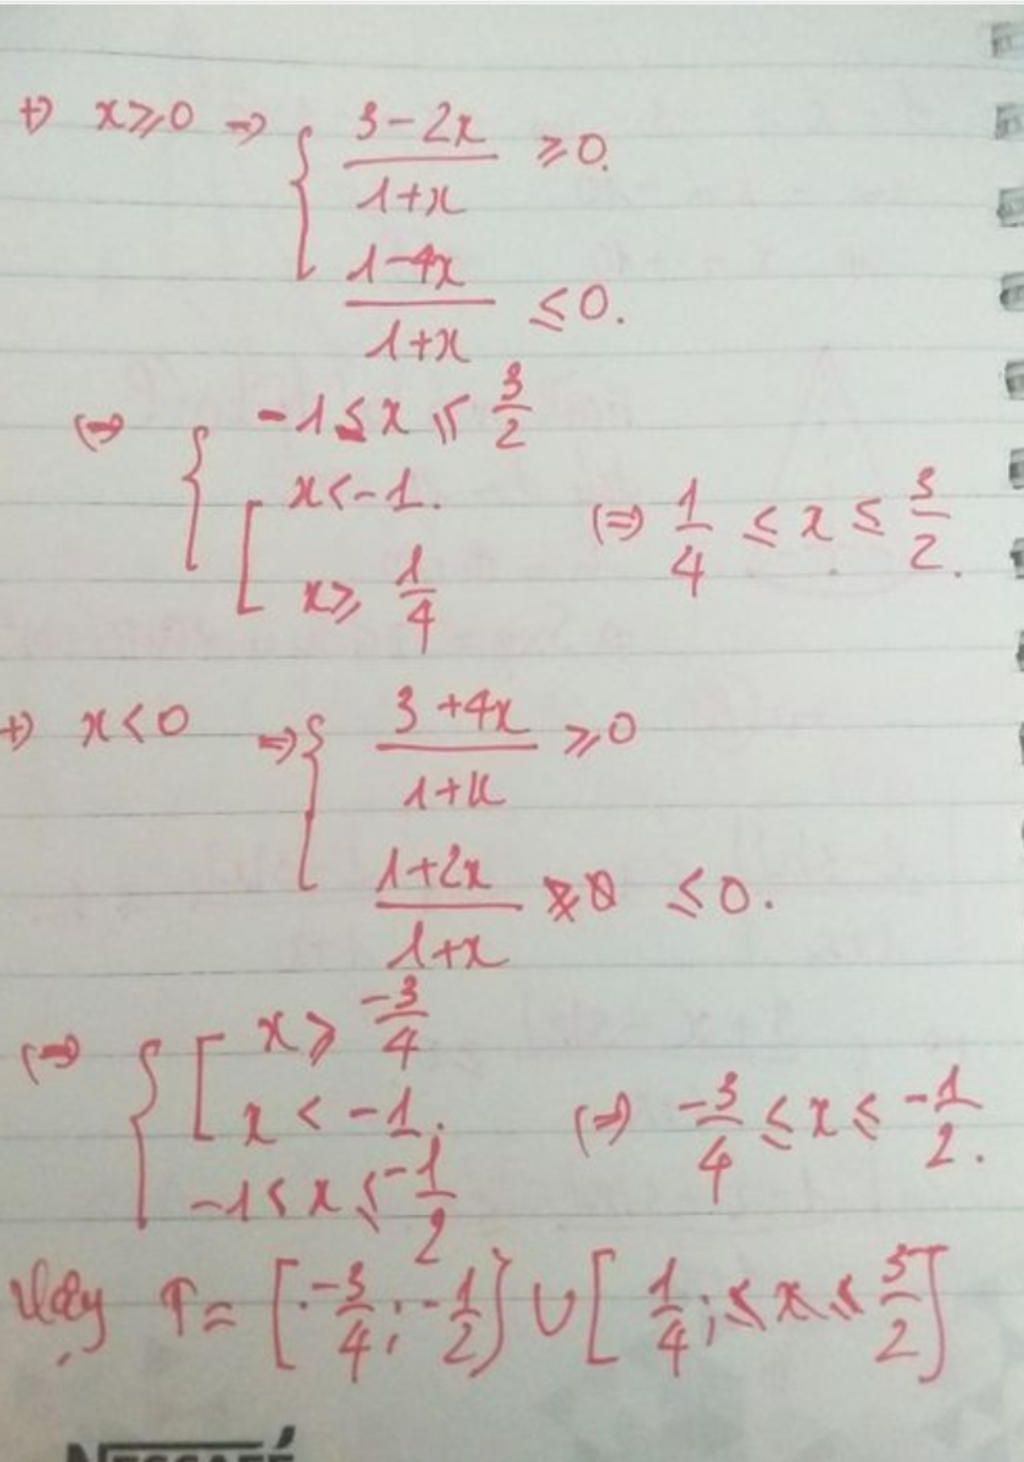 +) x ≥ 0 => { (3-2x)/(1+x) ≥ 0.
(1-4x)/(1+x) ≤ 0.
(=) { -1 ≤ x ≤ 3/2
[ x < -1.
x ≥ 1/4 (=) 1/4 ≤ x ≤ 3/2.
+) x < 0 => { (3+4x)/(1+x) ≥ 0
(1+2x)/(1+x) ≤ 0.
(=) { [ x ≥ -3/4
x < -1.
-1 < x ≤ -1/2 (=) -3/4 ≤ x ≤ -1/2.
Vậy T = [-3/4; -1/2] ∪ [1/4; ≤ x ≤ 3/2]
NESCAFÉ